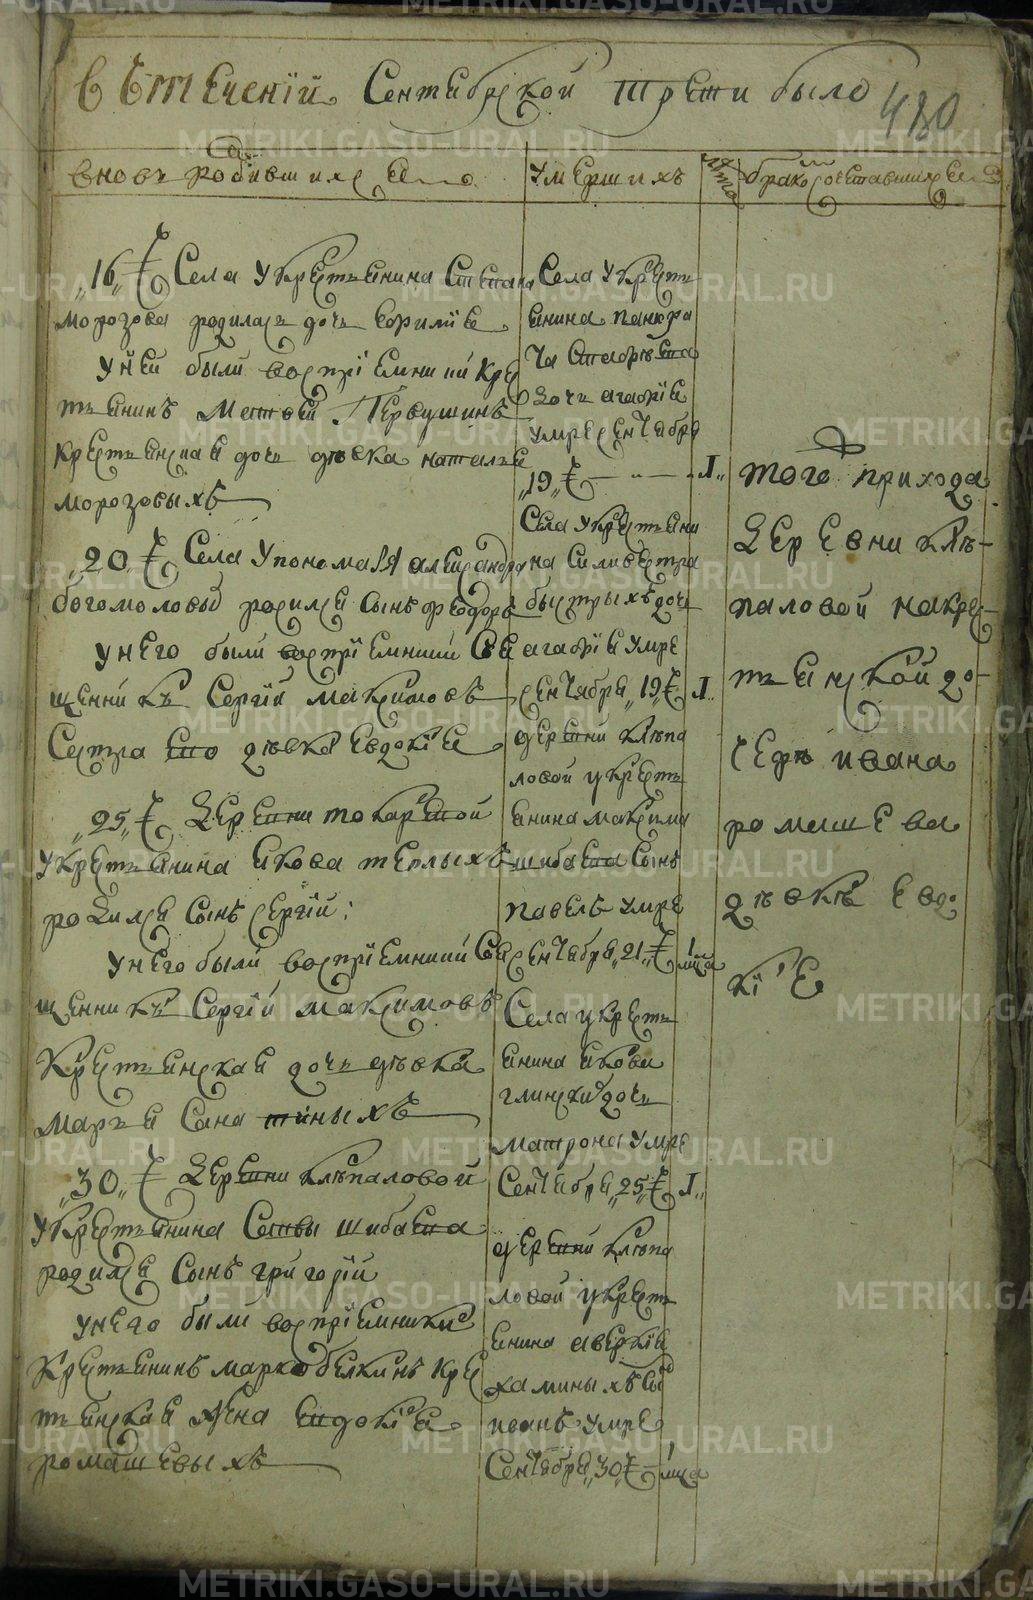 въ теченіи Сентябрской трети было
480
вновь родившихся
умершихъ
лета
бракосочетавшихся
"16" Села у крестьянина Степана
Морозова родилась дочь
у ней были воспріемники кре
стьянинъ Матвей Первушинъ
крестьянская дочь девка Наталья
Морозовыхъ
"20" Села у пономаря Александра
Богомолова родился сынъ Феодоръ
у него были воспріемники Свя
щенникъ Сергій Максимовъ
Сестра его девка Евдокія
"25" Деревни Токаревой
у крестьянина Якова Теплыхъ
родился сынъ Сергій:
у него были воспріемники Свя
щенникъ Сергій Максимовъ
Крестьянская дочь девка
Марья
"30" Деревни Клепаловой
у крестьянина Саввы Шибаева
родился сынъ Григорій
у него были воспріемники
Крестьянинъ Марко Белкинъ кре
стьянская жена Евдокія
Ромашевыхъ
Села у крест
янина Панкра
тя
дочь Агафія
умре сентября
"19" 1"
Села у крестьяни
на Силивестра
Быстрыхъ дочь
Агафія умре
сентября "19" 1"
деревни Клепа
ловой у кресть
янина Максима
Шибаева сынъ
Павелъ умре
сентября "21" 1 мца
Села у кресть
янина Якова
дочь
Матрона умре
Сентября "25" 1"
деревни Клепа
ловой у крест
янина Аверкія
Каминыхъ сы
Іванъ умре
Сентября "30" 1 мца
того прихода
деревни Кле-
паловой на крес-
тьянской до-
чере Ивана
Ромашева
девке Евдо
кіе
METRIKI.GASO-URAL.RU